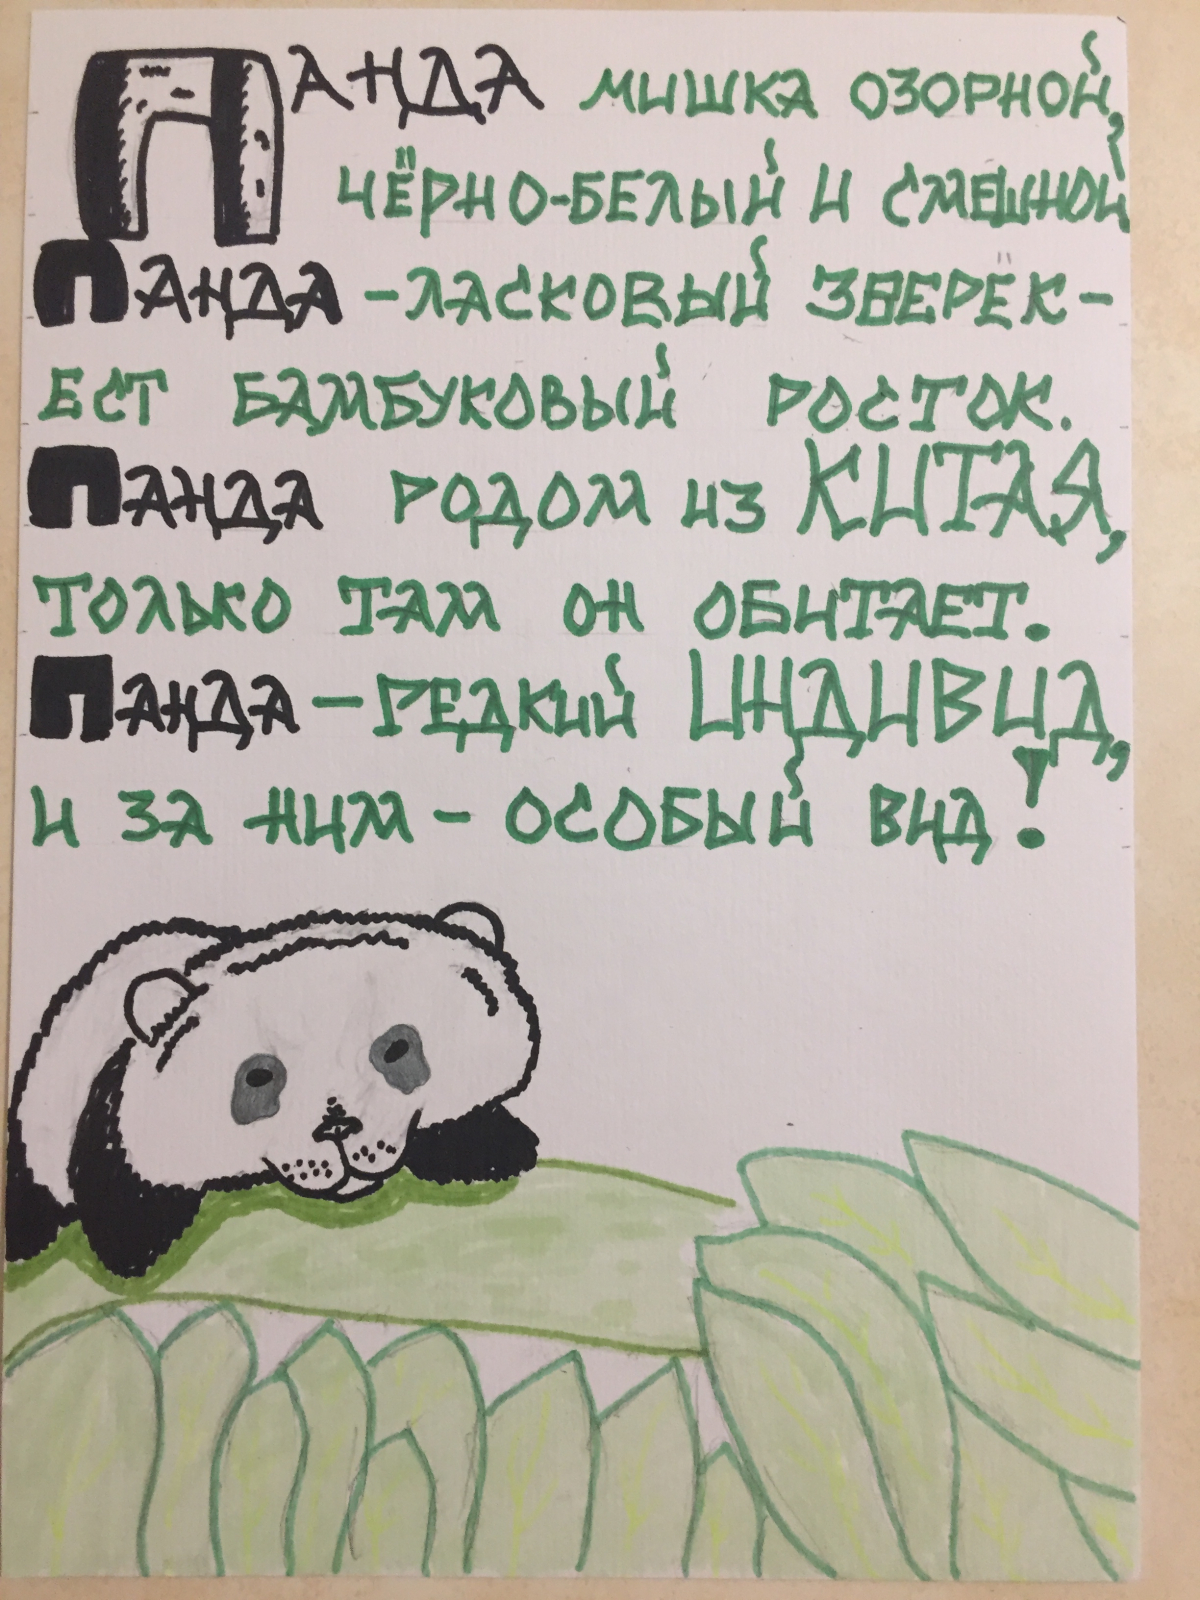 ПАНДА МИШКА ОЗОРНОЙ,
ЧЁРНО-БЕЛЫЙ И СМЕШНОЙ
ПАНДА - ЛАСКОВЫЙ ЗВЕРЁК -
ЕСТ БАМБУКОВЫЙ РОСТОК.
ПАНДА РОДОМ ИЗ КИТАЯ,
ТОЛЬКО ТАМ ОН ОБИТАЕТ.
ПАНДА - РЕДКИЙ ИНДИВИД,
И ЗА НИМ - ОСОБЫЙ ВИД!